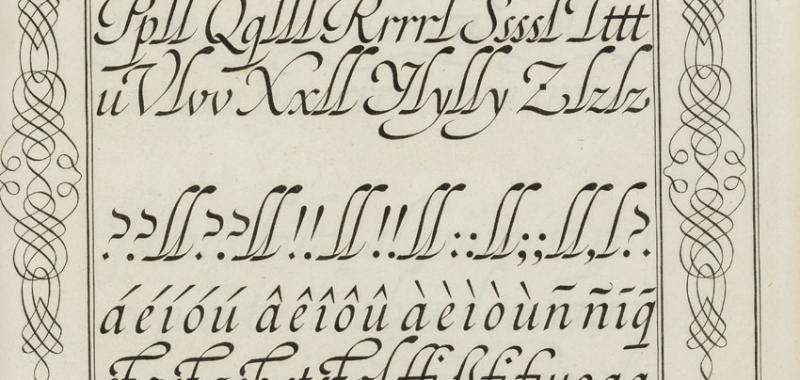 Ppll Qqlll Rrrrl Ssssl Tttt
uVlvv Xxll Ylylly Zlzlz
??ll ??ll !!ll !!ll ::ll;;ll,l?.
áéíóú âêîôû àèìòùñ ñīq̃